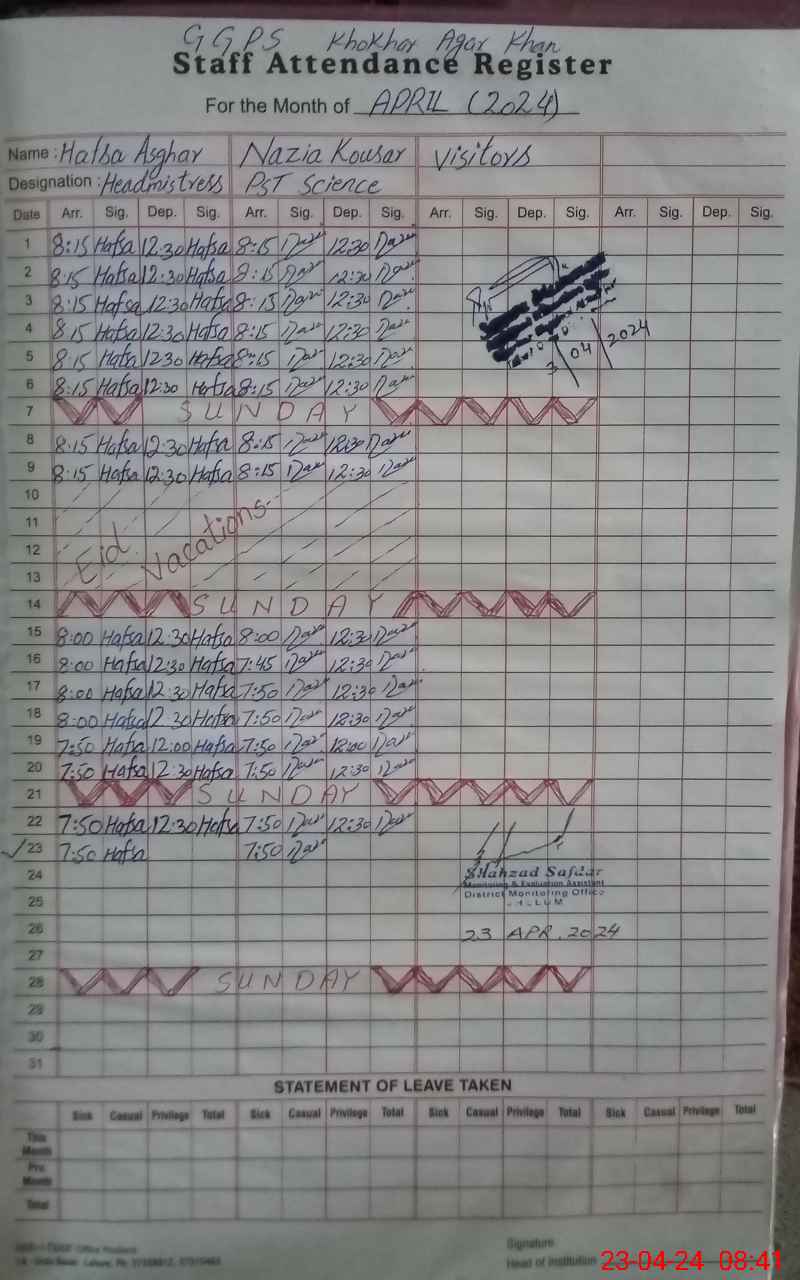 GGPS Khokhar Agar Khan
Staff Attendance Register
For the Month of APRIL (2024)
Name : Hafsa Asghar Nazia Kousar Visitors
Designation : Headmistress PST Science
Date Arr. Sig. Dep. Sig. Arr. Sig. Dep. Sig. Arr. Sig. Dep. Sig. Arr. Sig. Dep. Sig.
1 8:15 Hafsa 12:30 Hafsa 8:15 12:30
2 8:15 Hafsa 12:30 Hafsa 8:15 12:30
3 8:15 Hafsa 12:30 Hafsa 8:15 12:30
4 8:15 Hafsa 12:30 Hafsa 8:15 12:30
5 8:15 Hafsa 12:30 Hafsa 8:15 12:30
3/04/2024
6 8:15 Hafsa 12:30 Hafsa 8:15 12:30
7 SUNDAY
8 8:15 Hafsa 12:30 Hafsa 8:15 12:30
9 8:15 Hafsa 12:30 Hafsa 8:15 12:30
10
11
12 Eid Vacations
13
14 SUNDAY
15 8:00 Hafsa 12:30 Hafsa 8:00 12:30
16 8:00 Hafsa 12:30 Hafsa 7:45 12:30
17 8:00 Hafsa 12:30 Hafsa 7:50 12:30
18 8:00 Hafsa 12:30 Hafsa 7:50 12:30
19 7:50 Hafsa 12:00 Hafsa 7:50 12:00
20 7:50 Hafsa 12:30 Hafsa 7:50 12:30
21 SUNDAY
22 7:50 Hafsa 12:30 Hafsa 7:50 12:30
23 7:50 Hafsa 7:50
24 Shahzad Safdar
Monitoring & Evaluation Assistant
25 District Monitoring Office
JHELUM
26 23 APR. 2024
27
28 SUNDAY
29
30
31
STATEMENT OF LEAVE TAKEN
Sick Casual Privilege Total Sick Casual Privilege Total Sick Casual Privilege Total Sick Casual Privilege Total
This Month
Pre. Month
Total
Signature
Head of Institution
23-04-24 08:41